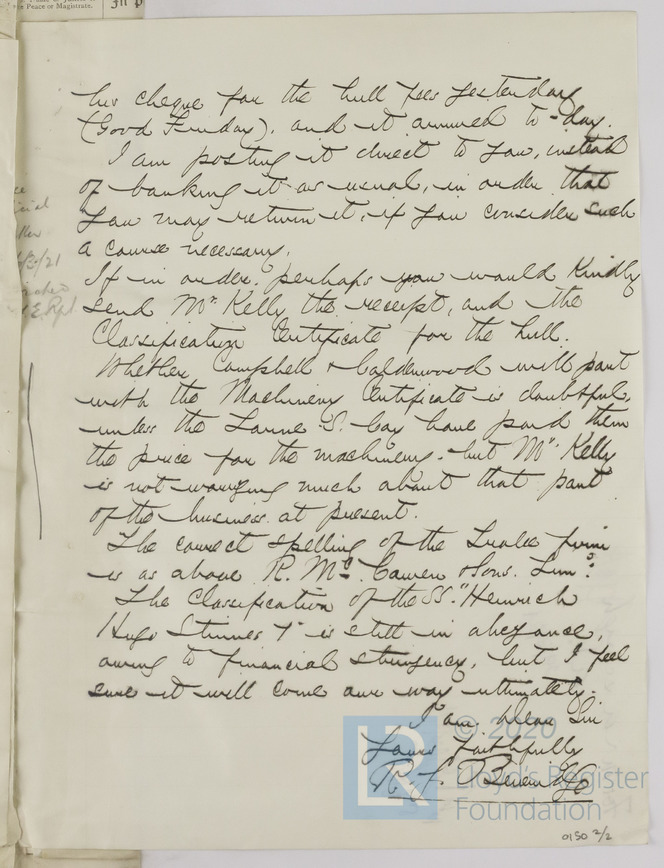 Peace or Magistrate.
his cheque for the hull fees yesterday
(Good Friday), and it arrived to-day.
I am posting it direct to you, instead
of banking it as usual, in order that
you may return it, if you consider such
a course necessary.
If in order, perhaps you would kindly
send Mr. Kelly the receipt, and the
Classification Certificate for the hull.
Whether Campbell & Calderwood will part
with the Machinery Certificate is doubtful,
unless the Larne S. Coy have paid them
the price for the machinery, but Mr. Kelly
is not worrying much about that part
of the business at present.
The correct spelling of the firm
is as above R. Mc. Cowen & Sons. Lim:
The Classification of the SS. "Heinrich
Hugo Stinnes 1" is still in abeyance,
owing to financial stringency, but I feel
sure it will come our way ultimately.
I am, Dear Sir
Yours faithfully
R. f.
© 2020
Lloyd's Register
Foundation
0150 2/2